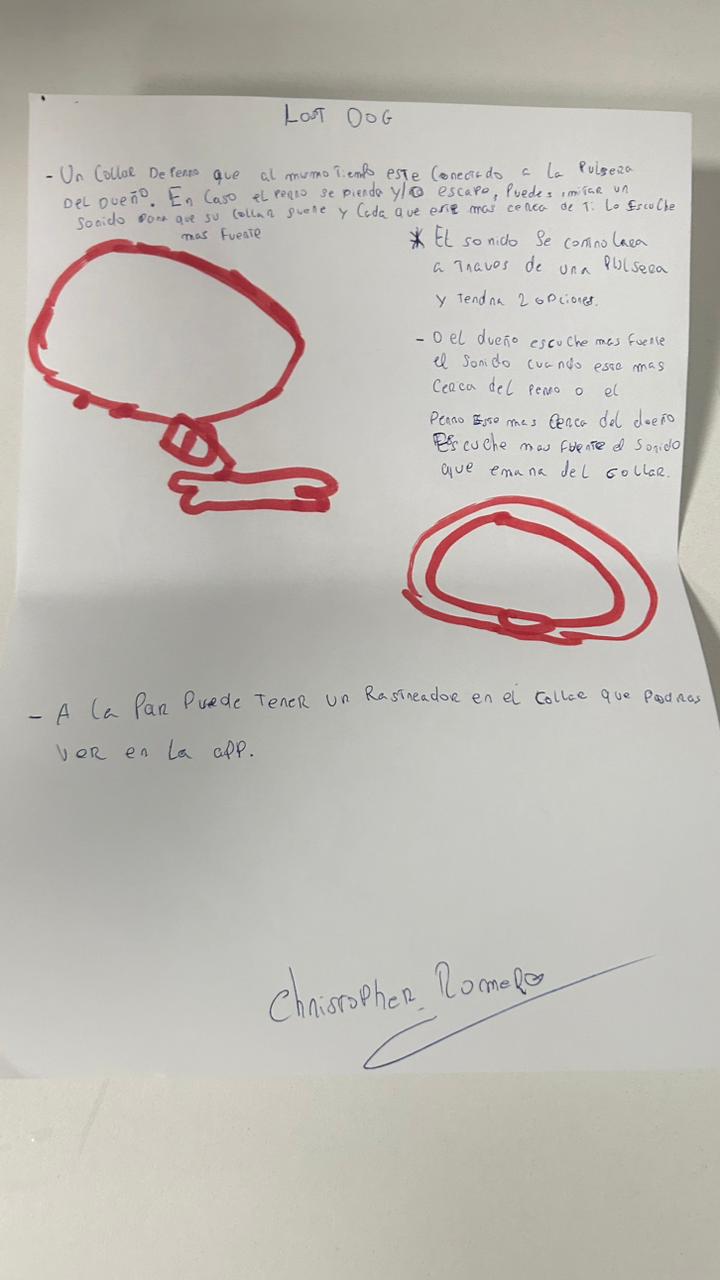 LOST DOG
- Un Collar De Perro que al mismo Tiempo este Conectado a la Pulsera
DEL DUEÑO. En Caso el Perro se pierda y/o escape, Puedes imitar un
Sonido para que su Collar suene y Cada que este mas cerca de Ti. Lo Escuche
mas Fuente
* EL sonido Se controlara
a Traves de una PULsera
y Tendra 2 opciones.
- O el dueño escuche mas Fuerte
el Sonido cuando este mas
Cerca del Perro o el
Perro Este mas Cerca del dueño
Escuche mas Fuerte el Sonido
que emana del Collar.
- A la Par Puede TENER un RastreadoR en el Collar que Podras
VER en La app.
Christopher Romero